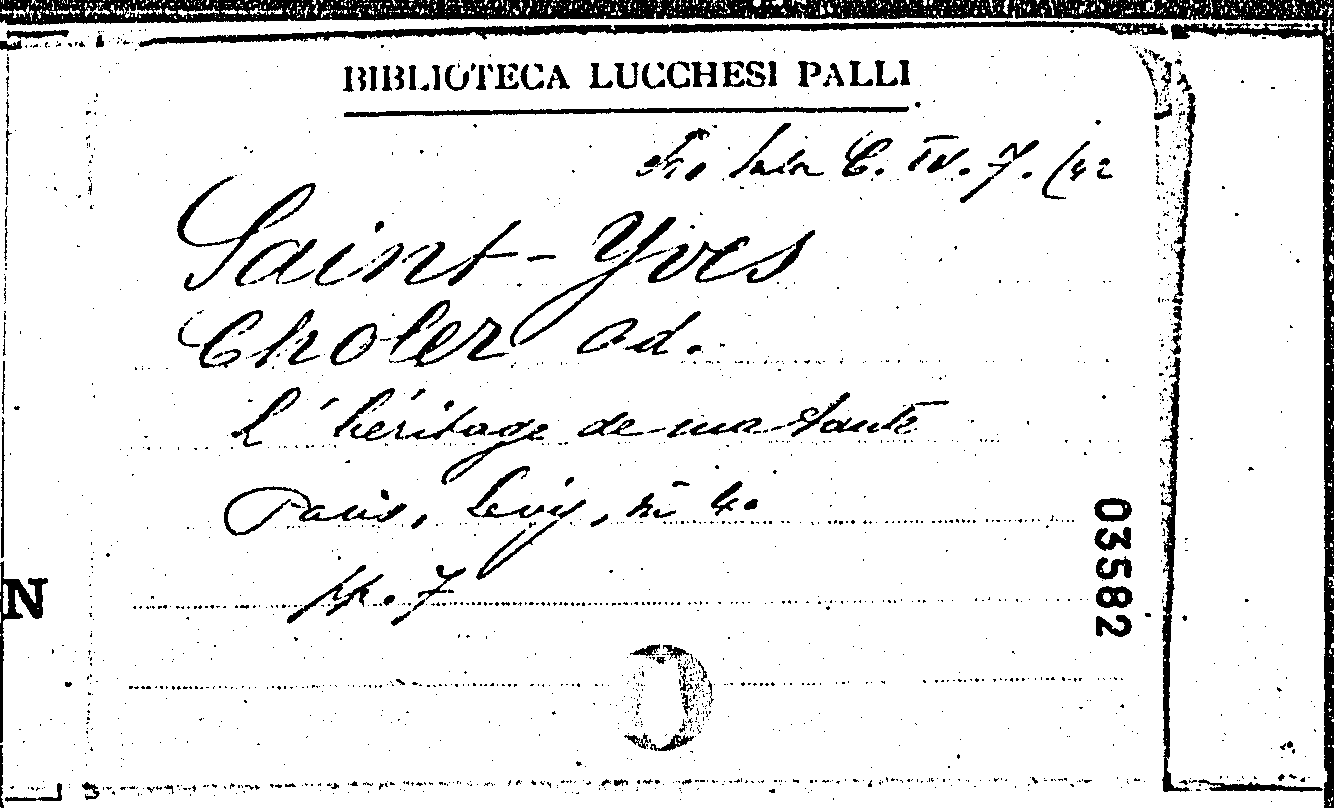 BIBLIOTECA LUCCHESI PALLI
Sala C. IV. 7. (42
Saint-Yves
Choler ad.
L'héritage de ma tante
Paris, Levy, in 4o
pp. 7
03582
N